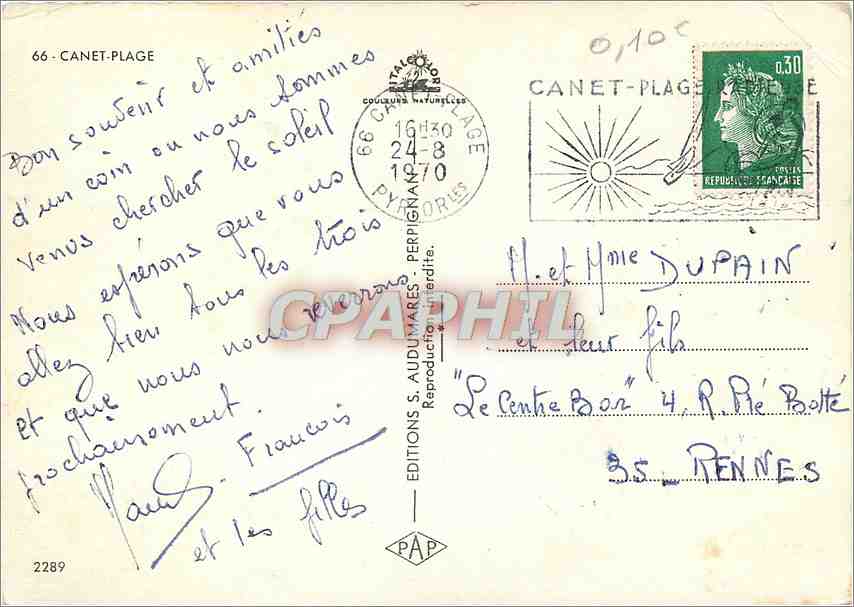 66 - CANET-PLAGE
Bon souvenir et amitiés
d'un coin ou nous sommes
venus chercher le soleil
Nous espérons que vous
allez bien tous les trois
et que nous nous reverrons
prochainement.
François
et les filles
2289
ITALCOLOR
COULEURS NATURELLES
66 CANET-PLAGE
16H30
24-8
1970
PYR. OR LES
0,10€
CANET-PLAGE RADIEUSE
0,30
POSTES
REPUBLIQUE FRANÇAISE
EDITIONS S. AUDUMARES - PERPIGNAN
Reproduction interdite.
M. et Mme DUPAIN
et leur fils
"Le Centre Bor" 4, R. Pré Botté
35 - RENNES
PAP
CPAPHIL